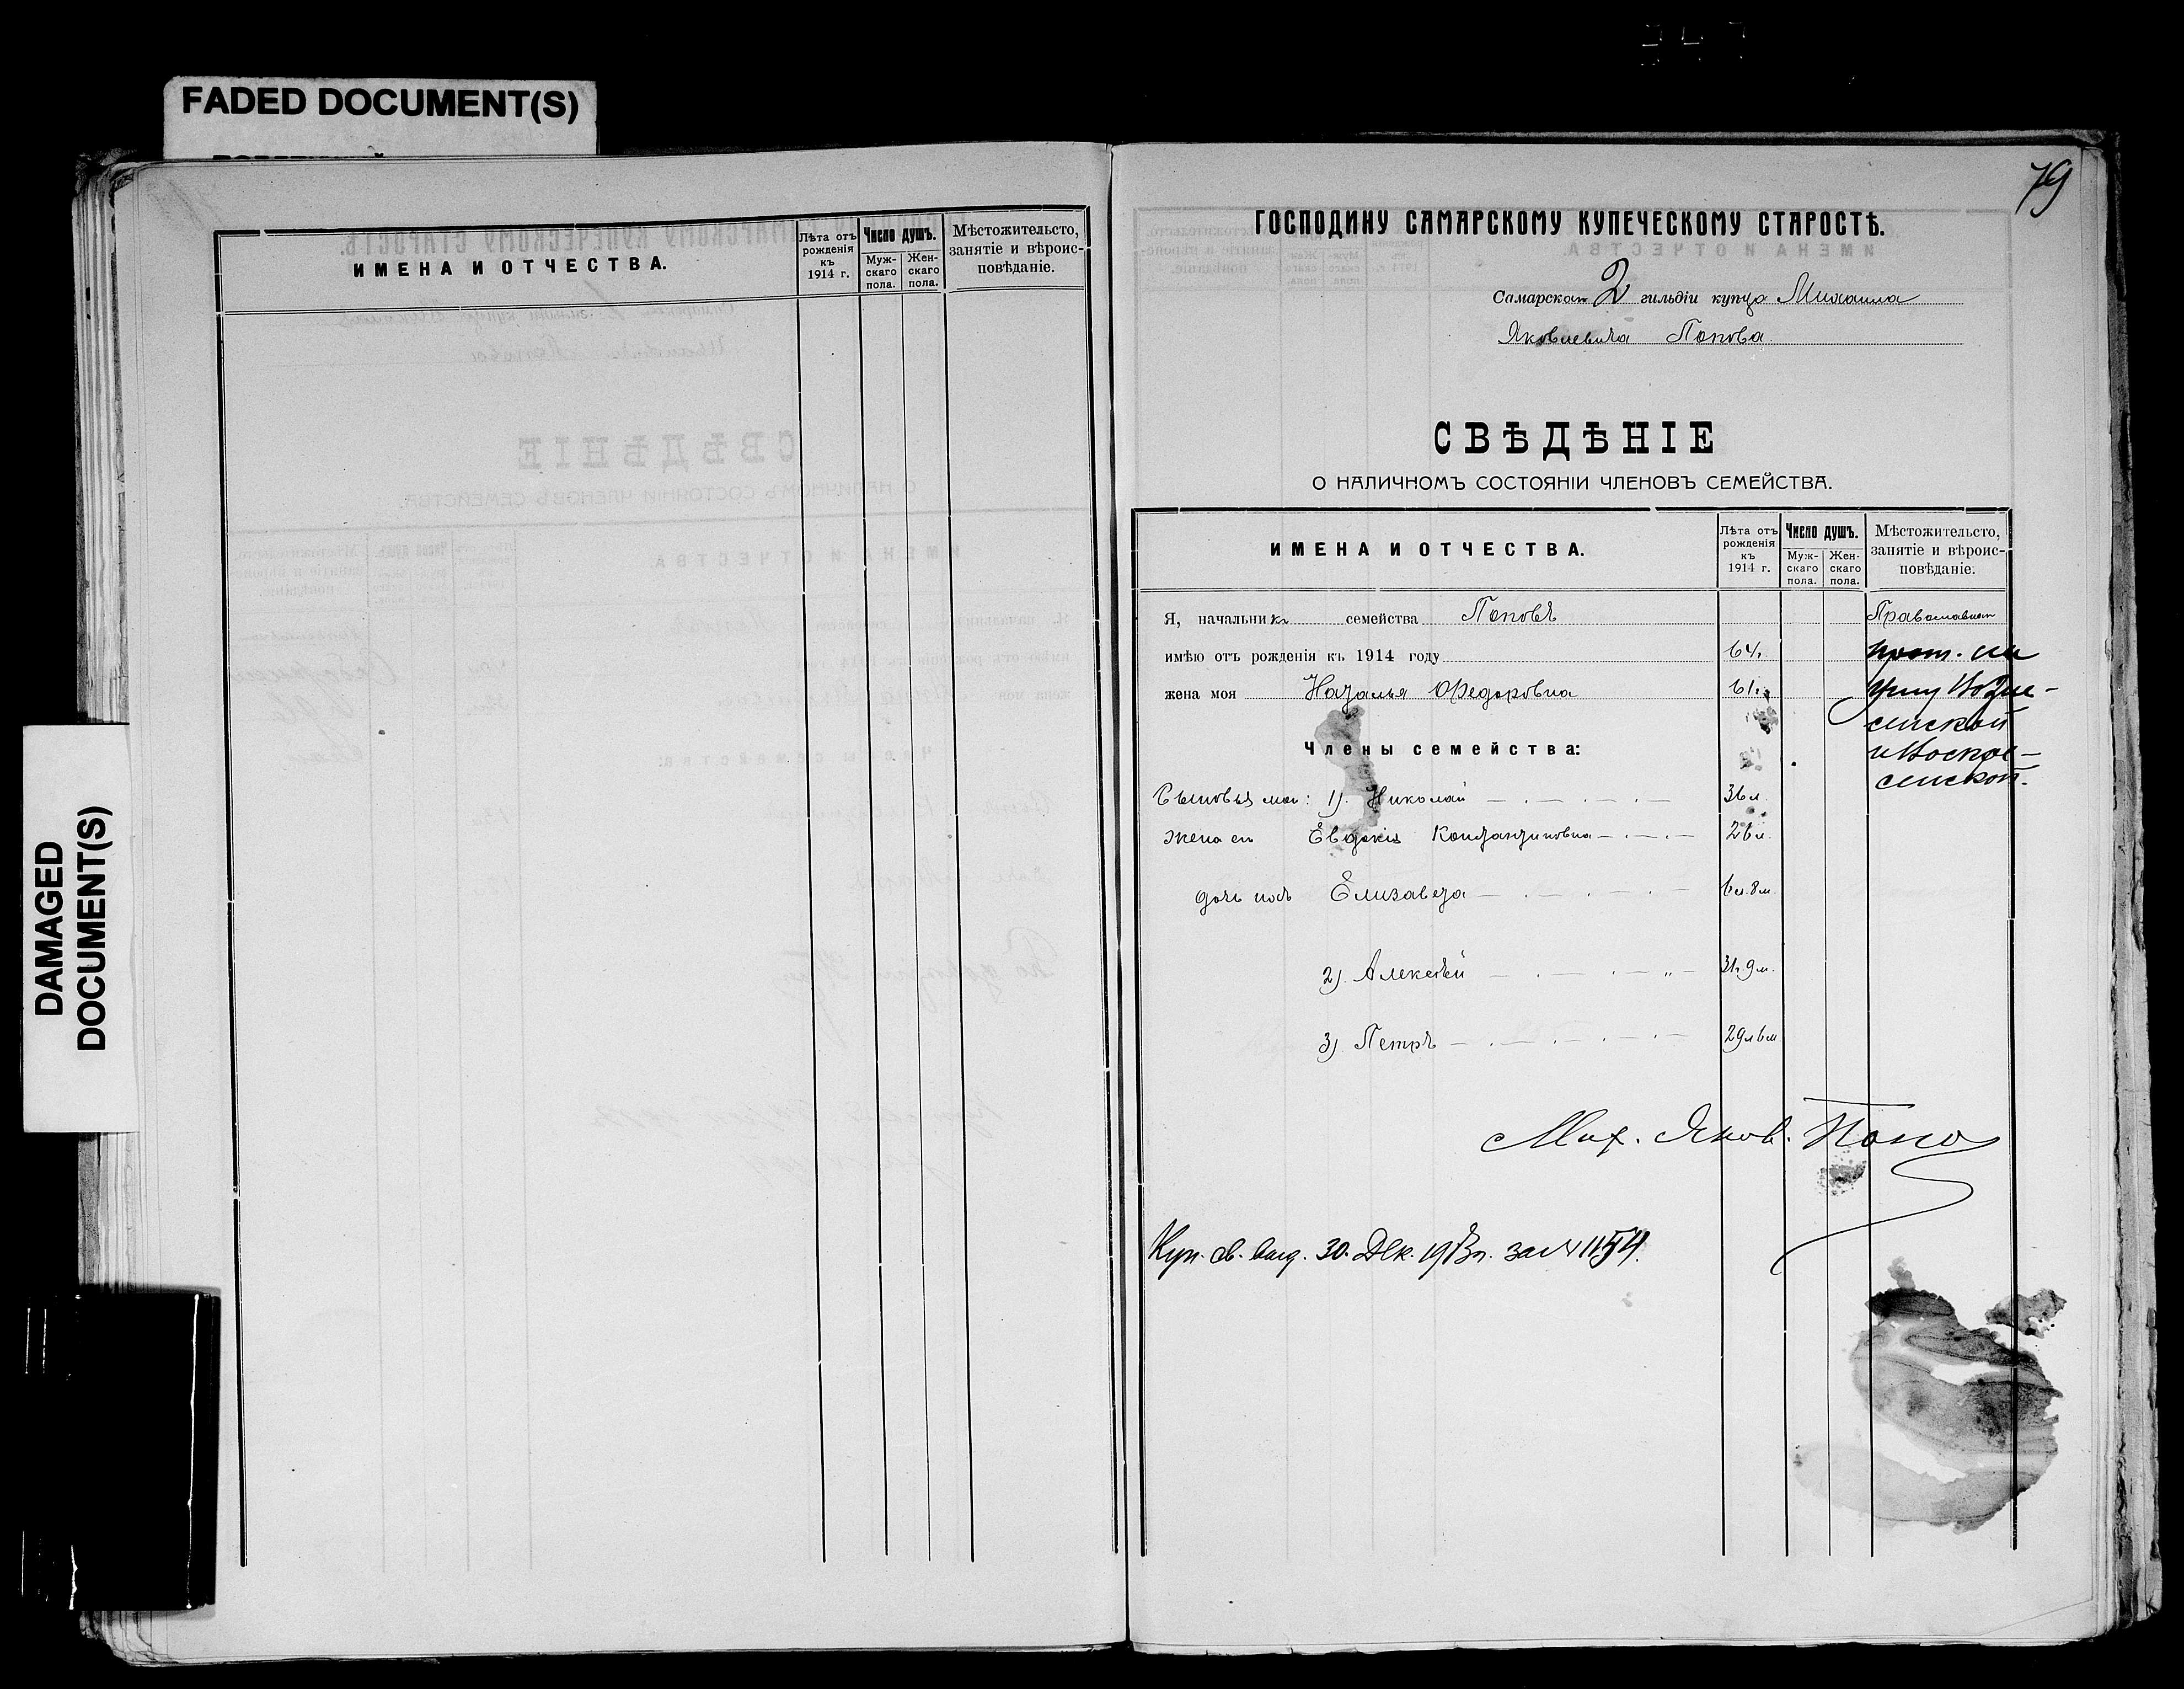 FADED DOCUMENT(S)
DAMAGED
DOCUMENT(S)
ИМЕНА И ОТЧЕСТВА.
Лѣта отъ рожденія къ 1914 г.
Число душъ.
Муж-скаго пола.
Жен-скаго пола.
Мѣстожительсто,
занятіе и вѣроис-
повѣданіе.
79
ГОСПОДИНУ САМАРСКОМУ КУПЕЧЕСКОМУ СТАРОСТѢ.
Самарскаго 2 гильдіи купца Михаила
Яковлевича Попова.
СВѢДѢНІЕ
О НАЛИЧНОМЪ СОСТОЯНІИ ЧЛЕНОВЪ СЕМЕЙСТВА.
ИМЕНА И ОТЧЕСТВА.
Лѣта отъ рожденія къ 1914 г.
Число душъ.
Муж-скаго пола.
Жен-скаго пола.
Мѣстожительсто,
занятіе и вѣроис-
повѣданіе.
Я, начальникъ семейства Поповъ
имѣю отъ рожденія къ 1914 году 64.
жена моя Наталья Федоровна 61.
Члены семейства:
Сыновья мои: 1). Николай 36 л.
жена его Евдокія Константиновна 26 л.
дочь ихъ Елизавета 6 л. 8 м.
2). Алексѣй 31 г. 9 м.
3) Петръ 29 л 6 м
Православная
углу Возне-
сенской
и Воскре-
сенской.
Мих. Яков. Попов
Куп. св. выд. 30. Дек. 1913 г. за № 1154.